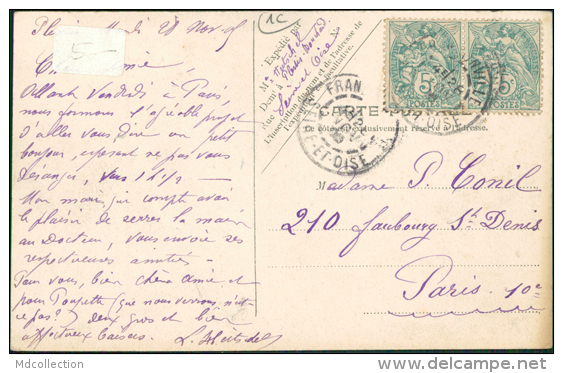 28 Nov
5
1C
Chère amie
Allant Vendredi à Paris,
nous formons l'agréable projet
d'aller vous dire un petit
bonjour, espérant ne pas vous
déranger, vers
Mon mari, qui compte avoir
le plaisir de serrer la main
au Docteur, vous envoie ses
respectueuses amitiés -
Pour vous, bien chère Amie et
pour Poupette (que nous verrons, n'est-
ce pas?) deux gros et bien
affectueux baisers.
Expédié par
Mme
Demt à
Rue
No
L'inscription du nom et de l'adresse de
l'expéditeur est facultative.
CARTE
Ce côté est exclusivement réservé à l'adresse.
FRAN
ET-OISE
5c
POSTES
5c
POSTES
OISE
Madame P. Conil
210 Faubourg St Denis
Paris 10e
Mdcollection
http://www.delcampe.net